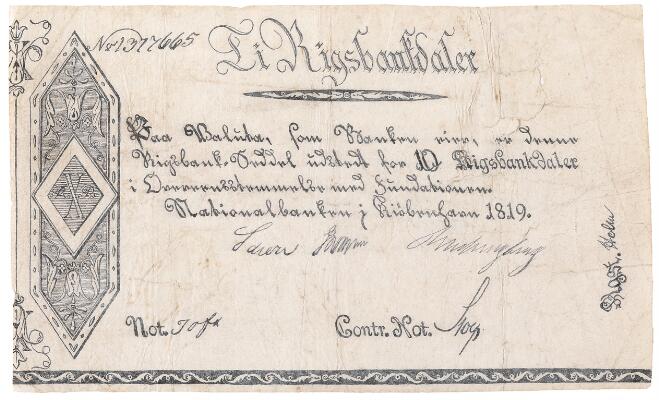 No 1317665
Ti Rigsbankdaler
Paa Valuta, som Banken eier, er denne
Rigsbank-Seddel udstedt for 10 Rigsbankdaler
i Overeensstemmelse med Fundationen.
Nationalbanken i Kiöbenhavn 1819.
X
Not.
Contr. Not.
Holm